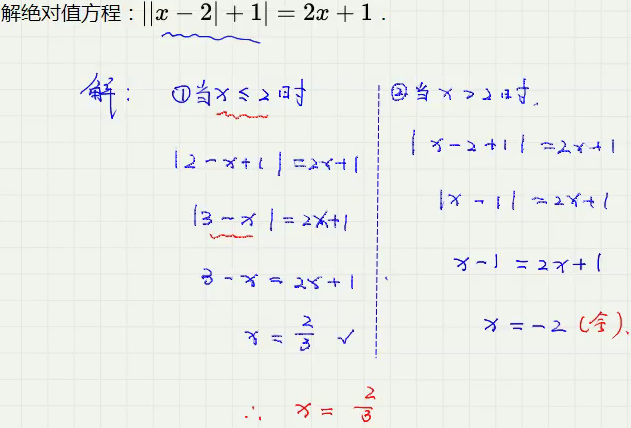 解绝对值方程：||x − 2| + 1| = 2x + 1 .
解：
①当x ≤ 2时
|2 − x + 1| = 2x + 1
|3 − x| = 2x + 1
3 − x = 2x + 1
x = 2/3 ✓
②当 x > 2时.
|x − 2 + 1| = 2x + 1
|x − 1| = 2x + 1
x − 1 = 2x + 1
x = −2 (舍).
∴ x = 2/3